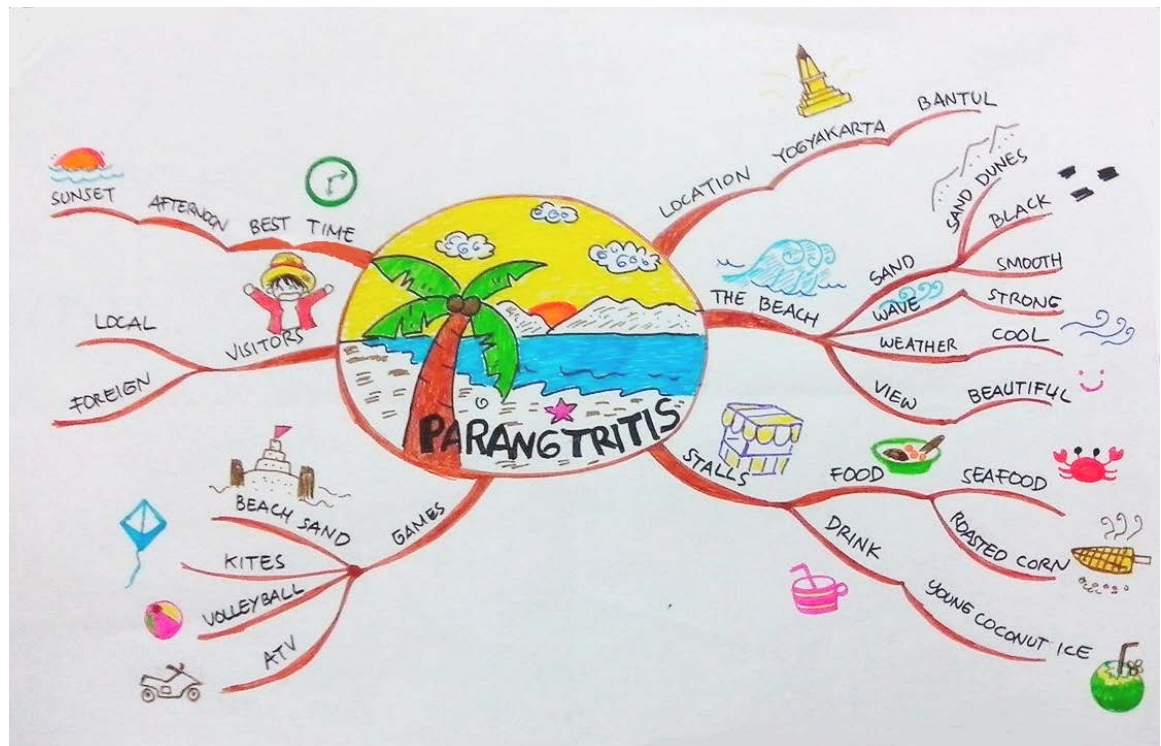 PARANGTRITIS
LOCATION
YOGYAKARTA
BANTUL
THE BEACH
SAND
SAND DUNES
BLACK
SMOOTH
WAVE
STRONG
WEATHER
COOL
VIEW
BEAUTIFUL
STALLS
FOOD
SEAFOOD
ROASTED CORN
DRINK
YOUNG COCONUT ICE
GAMES
BEACH SAND
KITES
VOLLEYBALL
ATV
VISITORS
LOCAL
FOREIGN
BEST TIME
AFTERNOON
SUNSET